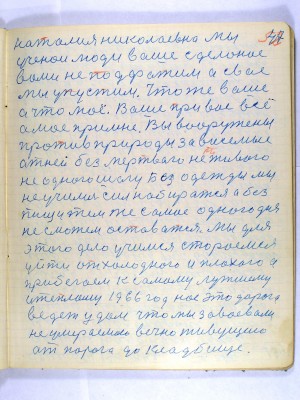 наталия николаевна мы
ученои люди ваше сделоное
вами не поддражим а свое
мы упустим. Что же ваше
а что моё. Ваше при вас всё
а мое при мне. Вы вооружены
против природы зависемые
атней без мертваго не живого
не одного числу Без одежды мы
неучимся сил набиратся а без
пищи тем же самае одного дня
не сможем оставатся. Мы для
этого дело учимся стораемся
уйти от холодного и плохого а
прибегаем к самому лутшему
итеплому 1966 год нас это дорога
ведет удам что мы завоевали
неумераемаю вечно живущею
от парога до кладбище.